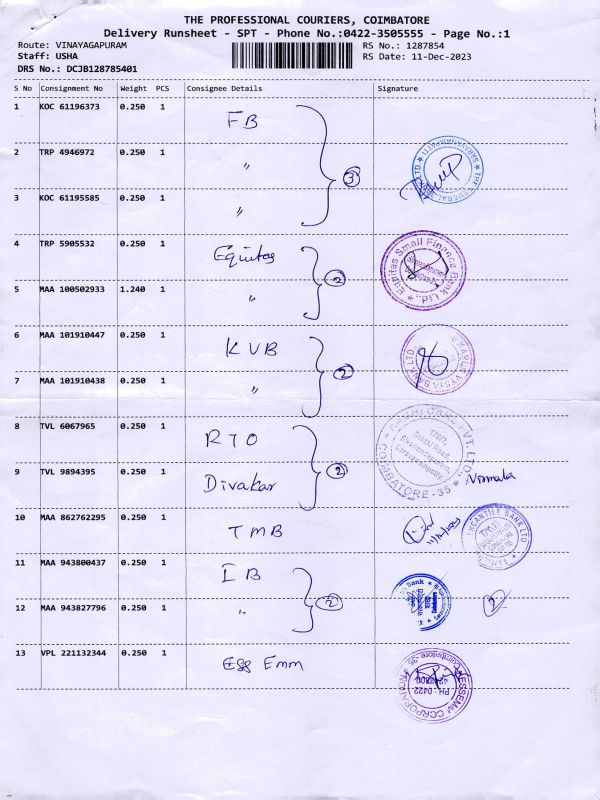 THE PROFESSIONAL COURIERS, COIMBATORE
Delivery Runsheet - SPT - Phone No.:0422-3505555 - Page No.:1
Route: VINAYAGAPURAM
RS No.: 1287854
Staff: USHA
RS Date: 11-Dec-2023
DRS No.: DCJB128785401
S No Consignment No Weight PCS Consignee Details Signature
1 KOC 61196373 0.250 1 FB
2 TRP 4946972 0.250 1 〃
3
3 KOC 61195585 0.250 1 〃
4 TRP 5905532 0.250 1 Equitas
Equitas Small Finance Bank Ltd.,
2
5 MAA 100502933 1.240 1 〃
6 MAA 101910447 0.250 1 KVB
VYSYA BANK LTD
2
7 MAA 101910438 0.250 1 〃
8 TVL 6067965 0.250 1 RTO
CARS PVT. LTD.
COIMBATORE-35
2
9 TVL 9894395 0.250 1 Divakar
Nirmala
10 MAA 862762295 0.250 1 TMB
11/12/2023
MERCANTILE BANK LTD
TMB
11 MAA 943800437 0.250 1 IB
Bank
2
12 MAA 943827796 0.250 1 〃
13 VPL 221132344 0.250 1 Ess Emm
ESSEMM CORPORATION
PH : 0422